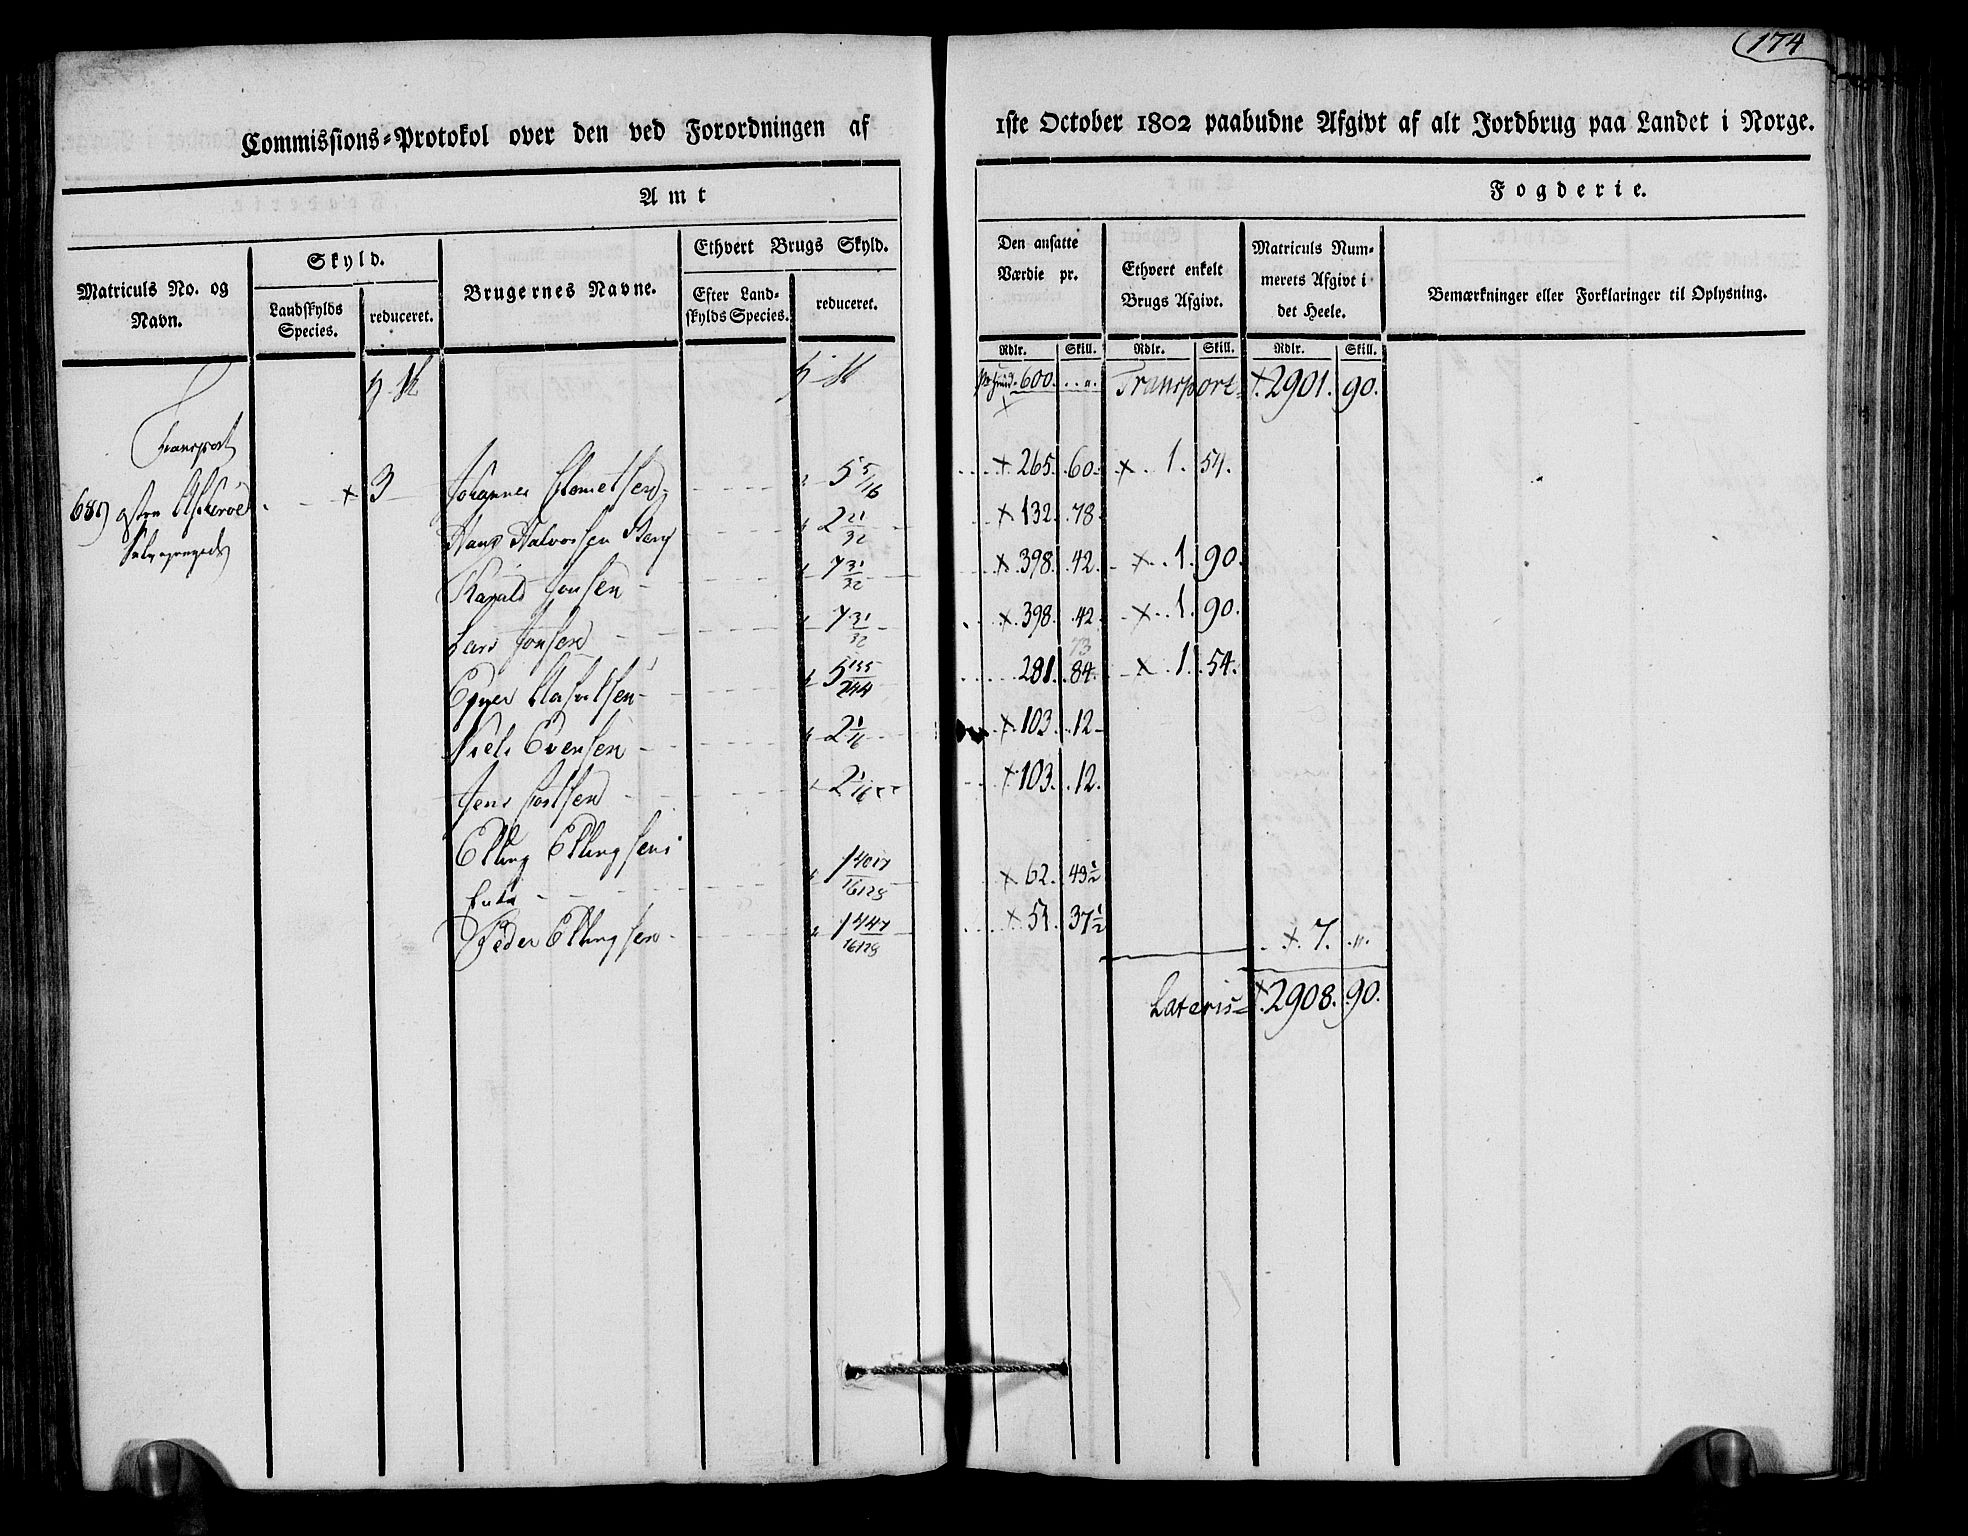 174
Commissions=Protokol over den ved Forordningen af 1ste October 1802 paabudne Afgivt af alt Jordbrug paa Landet i Norge.
Amt
Fogderie.
Matriculs No. og Navn.
Skyld.
Landskylds Species.
reduceret.
Brugernes Navne.
Ethvert Brugs Skyld.
Efter Land=skylds Species.
reduceret.
Den ansatte Værdie pr.
Ethvert enkelt Brugs Afgivt.
Matriculs Num=merets Afgivt i det Heele.
Bemærkninger eller Forklaringer til Oplysning.
Rdlr. Skill. Rdlr. Skill. Rdlr. Skill.
600. Transport= 2901. 90.
Transport
68) østre 3 Johannes 5 5/16 265. 60. 1. 54.
Hans Halvorsen Berg 2 21/32 132. 78
Harald Jonsen 7 31/32 398. 42. 1. 90.
Lars Jonsen 7 31/32 398. 42. 1. 90.
73
5 281. 84. 1. 54.
Niels Evensen 2 1/16 103. 12
Jens 2 1/16 103. 12.
Elling Ellingsens
Enke 1 4017/16128 62. 49 1/2
Peder Ellingsen 1 447/16128 51. 37 1/2
7. "
Lateris= 2908. 90.